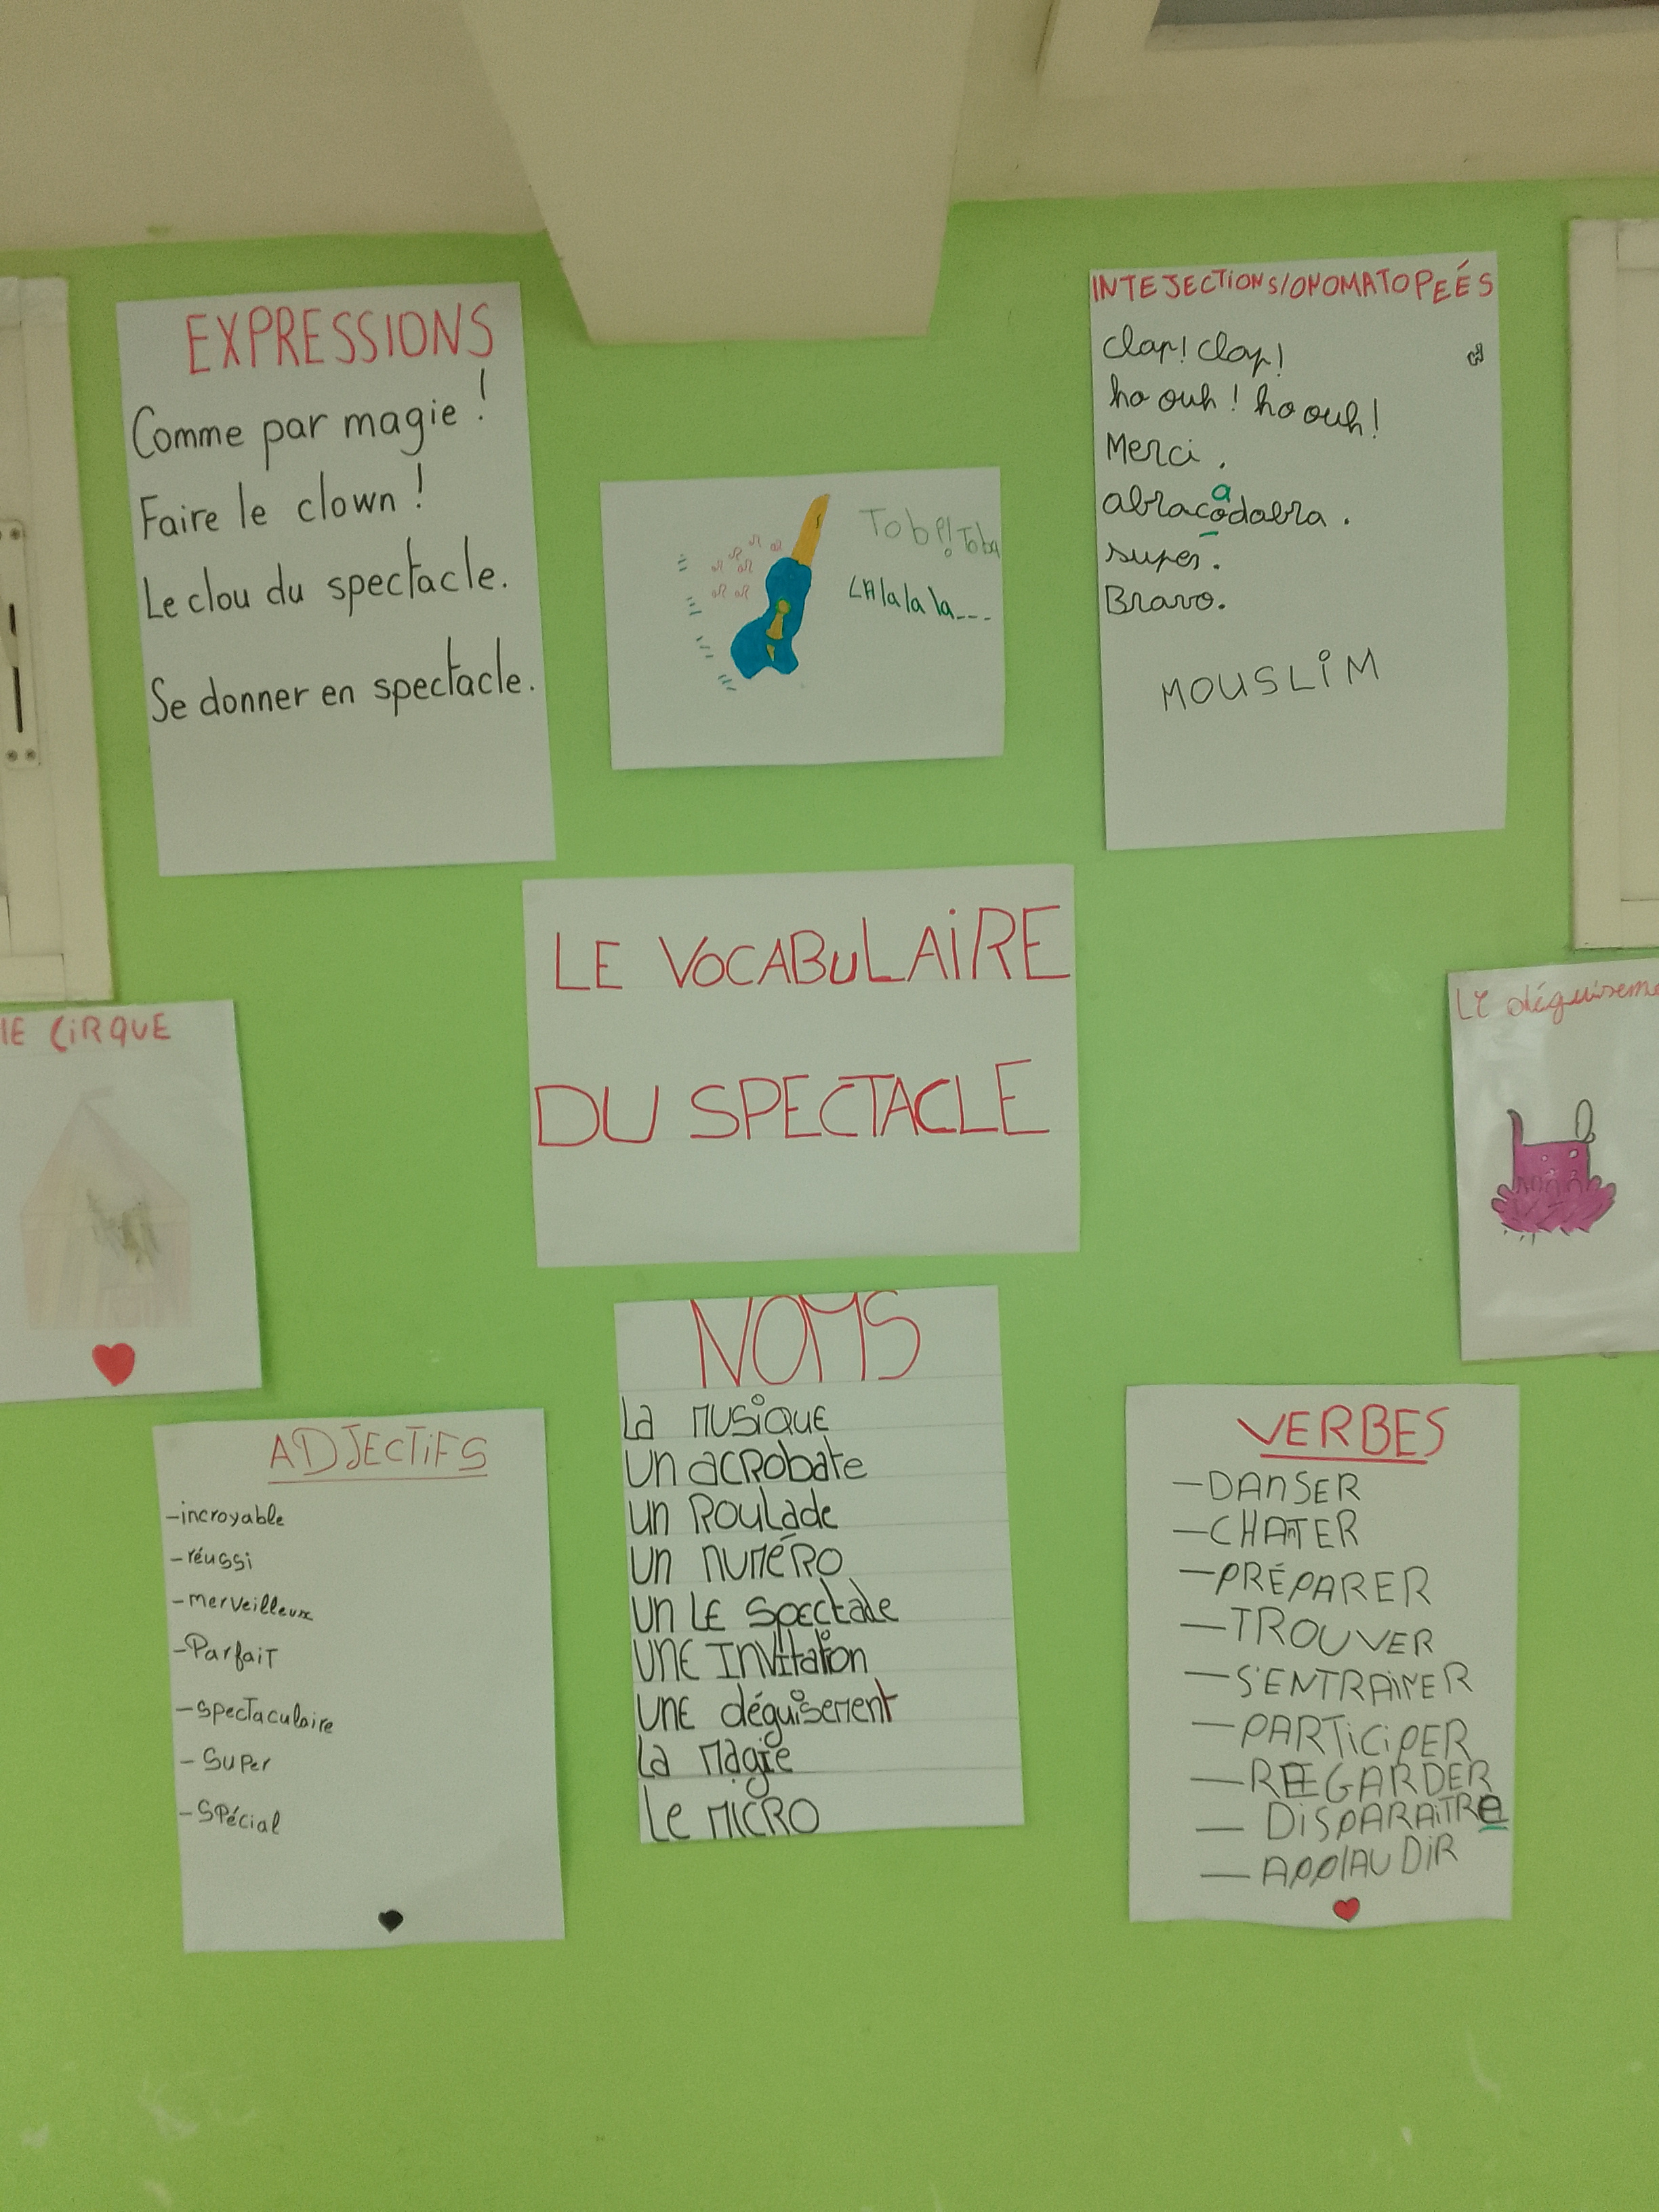 EXPRESSIONS
Comme par magie !
Faire le clown !
Le clou du spectacle.
Se donner en spectacle.
Tob !! Toba
LAlalala---
INTEJECTIONS/ONOMATOPEÉS
clap! clap!
ha ouh ! ha ouh!
Merci .
abracadabra .
super .
Bravo.
MOUSLIM
LE VOCABULAIRE
DU SPECTACLE
lE CIRQUE
LE déguiseme
ADJECTIFS
-incroyable
-réussi
-merveilleux
-Parfait
-spectaculaire
- super
-spécial
NOMS
La musique
un acrobate
un Roulade
un numéro
un LE spectale
UNE Invitation
UNE déguisement
la magie
Le MICRO
VERBES
-DANSER
-CHANTER
-PRÉPARER
-TROUVER
-S'ENTRAINER
-PARTICIPER
-REGARDER
- DISPARAITRe
- APPlAUDIR